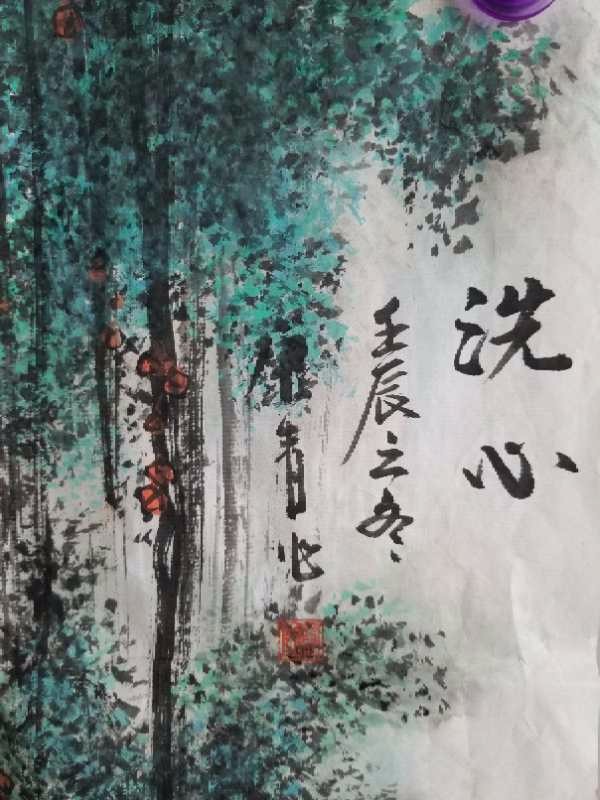 洗心
壬辰之冬
青作